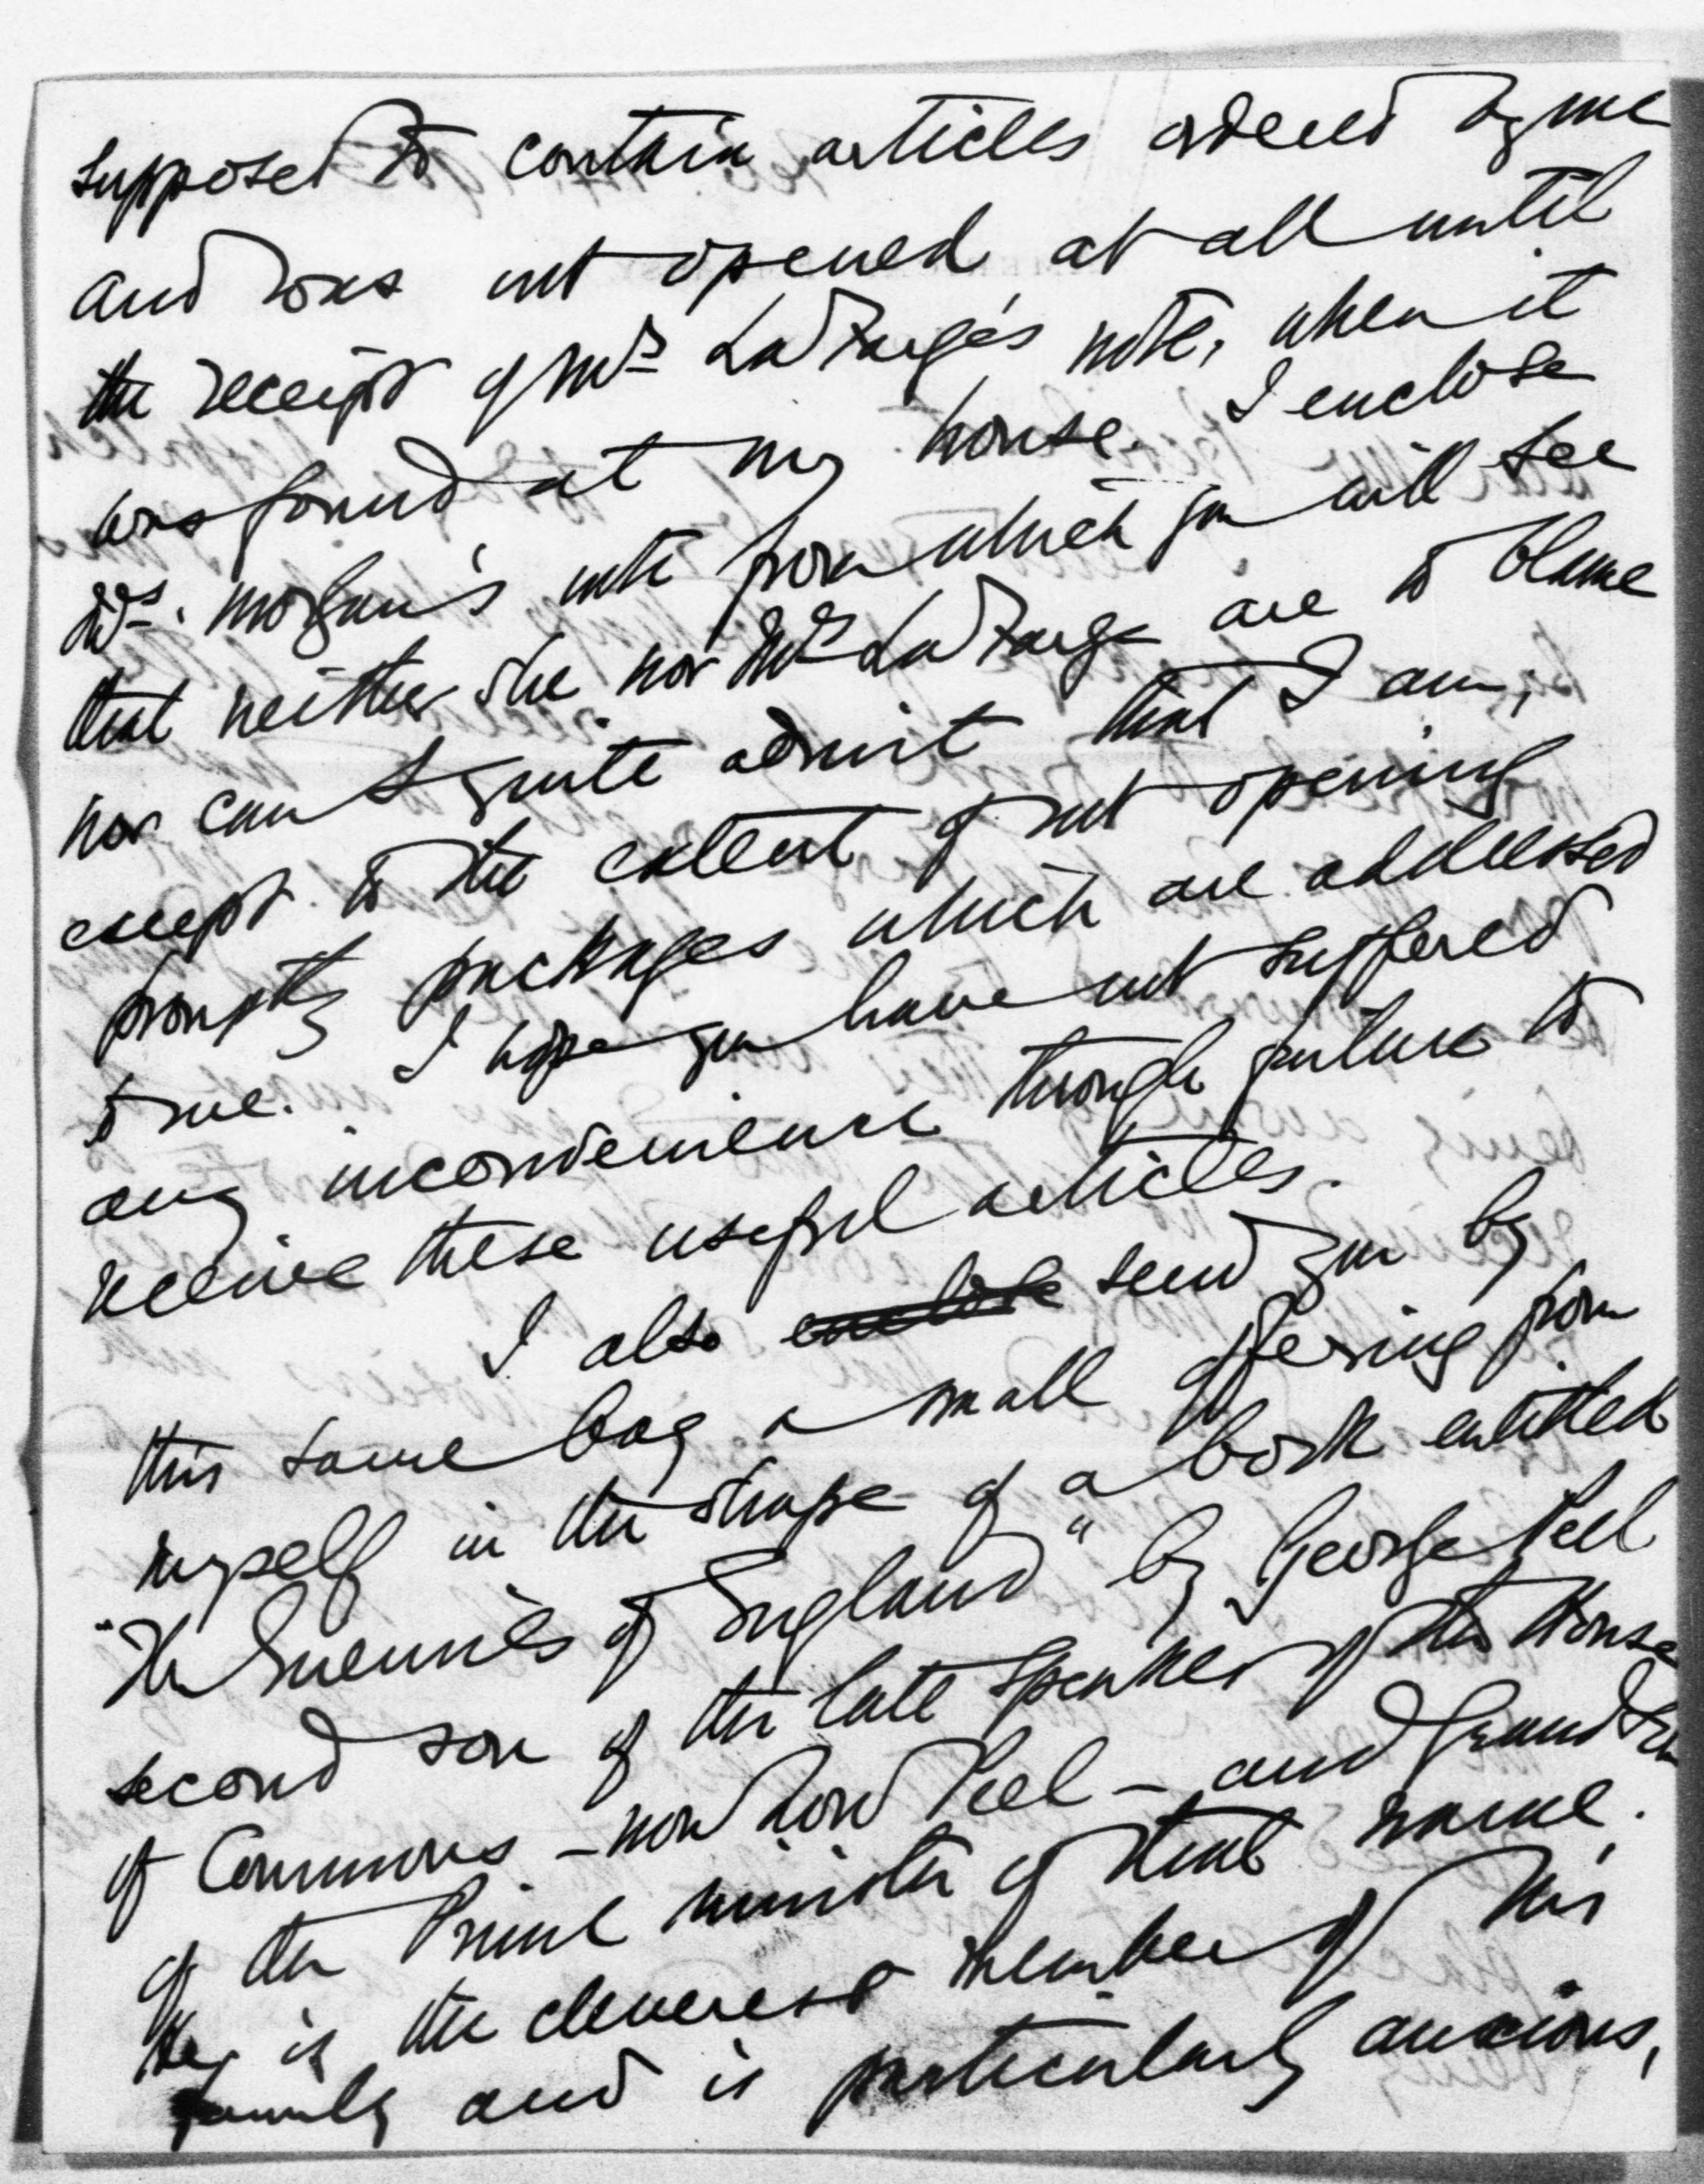 supposed to contain articles ordered by me
and was not opened at all until
the receipt of Mrs LaFarge's note, when it
was found at my house. I enclose
Mrs. Morgan's note from which you will see
that neither she nor Mrs LaFarge are to blame
nor can I quite admit that I am,
except to the extent of not opening
promptly packages which are addressed
to me. I hope you have not suffered
any inconvenience through failure to
receive these useful articles.
I also enclose send you by
this same bag a small offering from
myself in the shape of a book entitled
"The Enemies of England" by George Peel
second son of the late Speaker of the House
of Commons – now Lord Peel – and grandson
of the Prime Minister of that name.
He is the cleverest member of his
family and is particularly anxious,